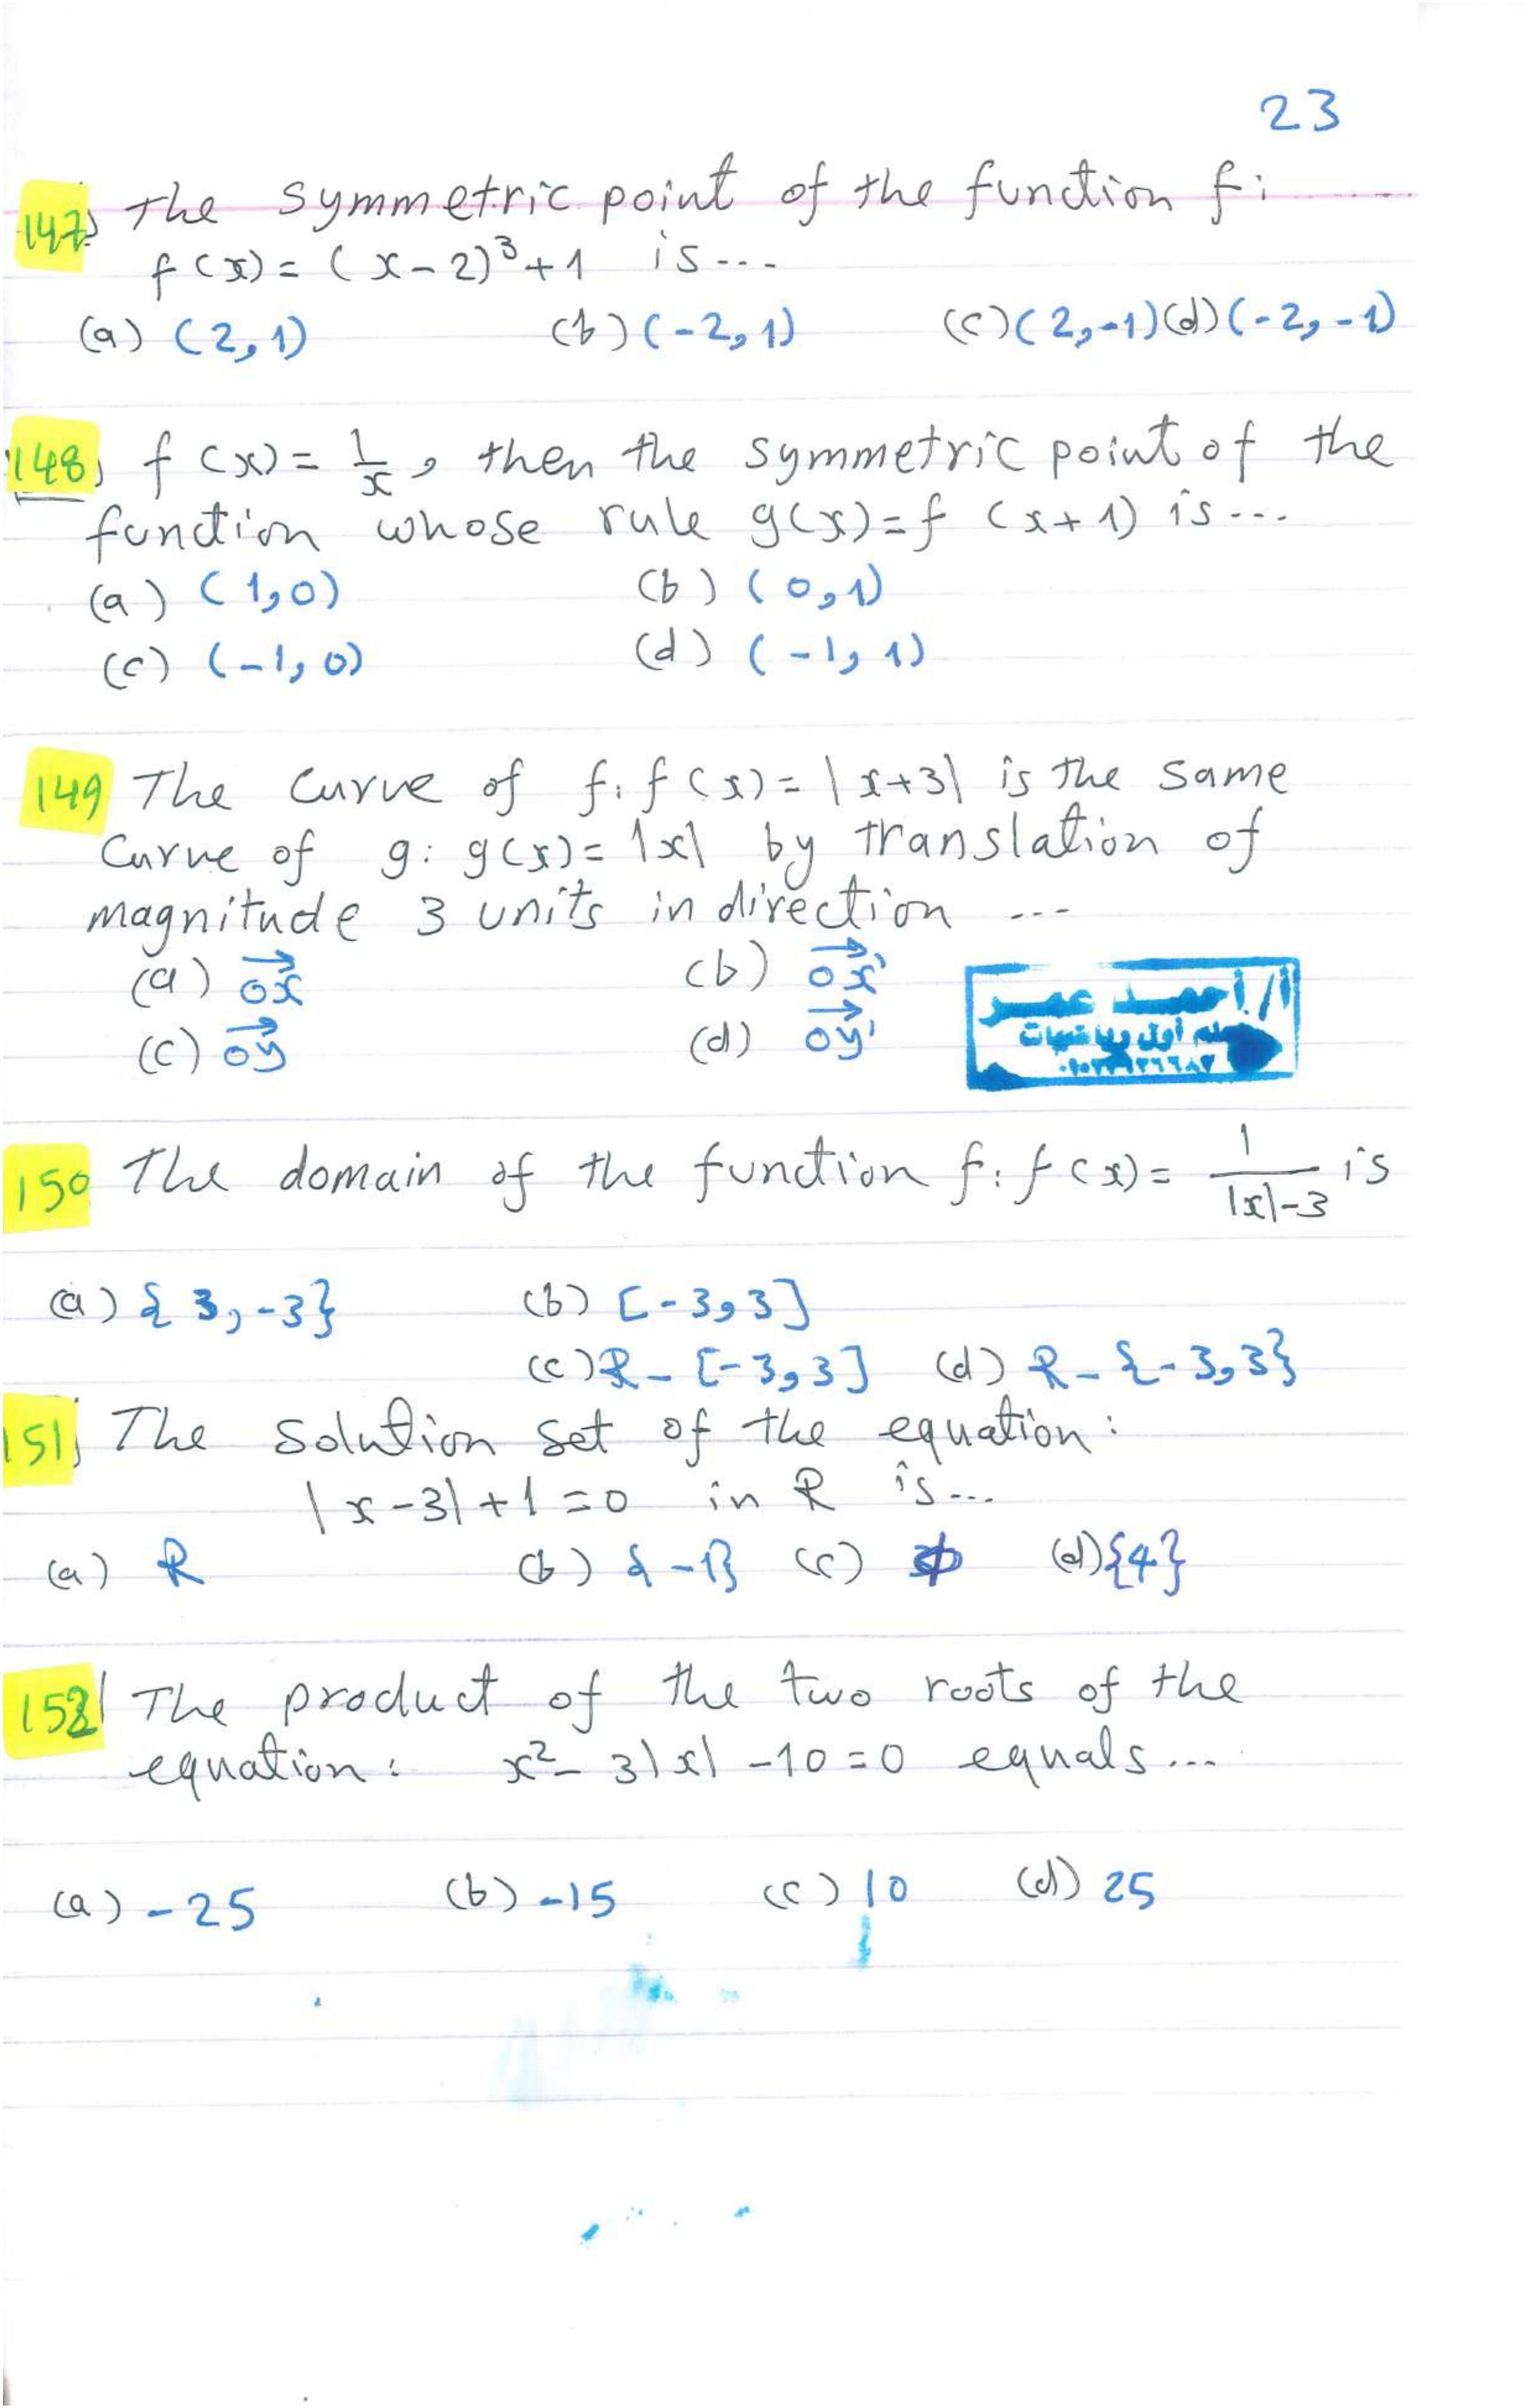 23
147) The symmetric point of the function f:
f(x) = (x-2)³+1 is...
(a) (2,1) (b) (-2,1) (c) (2,-1) (d) (-2,-1)
148) f(x) = 1/x, then the symmetric point of the
function whose rule g(x)=f(x+1) is...
(a) (1,0) (b) (0,1)
(c) (-1,0) (d) (-1,1)
149 The curve of f: f(x)=|x+3| is the same
curve of g: g(x)=|x| by translation of
magnitude 3 units in direction ...
(a) →ox (b) →ox'
(c) →oy (d) →oy'
أ/أحمد عمر
معلم أول رياضيات
150 The domain of the function f: f(x)= 1/(|x|-3) is
(a) {3,-3} (b) [-3,3]
(c) R-[-3,3] (d) R-{-3,3}
151) The solution set of the equation:
|x-3|+1=0 in R is...
(a) R (b) {-1} (c) ϕ (d) {4}
152) The product of the two roots of the
equation: x²-3|x|-10=0 equals...
(a) -25 (b) -15 (c) 10 (d) 25